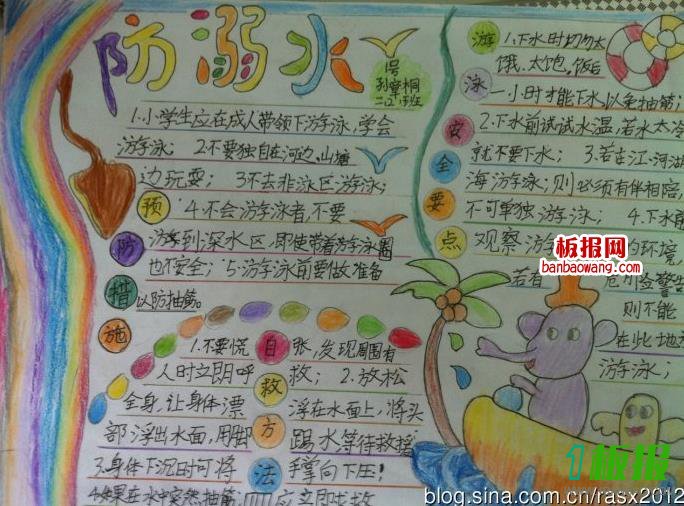 防溺水
1号
孙寧桐
二.2班
1.小学生应在成人带领下游泳,学会
游泳; 2.不要独自在河边、山塘
边玩耍; 3.不去非泳区游泳;
4.不会游泳者,不要
游泳到深水区,即使带着游泳圈
也不安全; 5.游泳前要做准备
以防抽筋。
预防措施
游泳安全要点
1.下水时切勿太
饿、太饱。饭后
一小时才能下水以免抽筋;
2.下水前试试水温,若水太冷
就不要下水; 3.若在江、河、湖
海游泳;则必须有伴相陪,
不可单独游泳; 4.下水前
观察游 的环境,
若有 危险警
则不能
在此地
游泳;
自救方法
1.不要慌张,发现周围有
人时立即呼救; 2.放松
全身,让身体漂浮在水面上,将头
部浮出水面,用脚踢水等待救援
3.身体下沉时可将手掌向下压;
4.如果在水中突然抽筋 应立即求救
板报网
banbaowang.com
1板报
blog.sina.com.cn/rasx2012